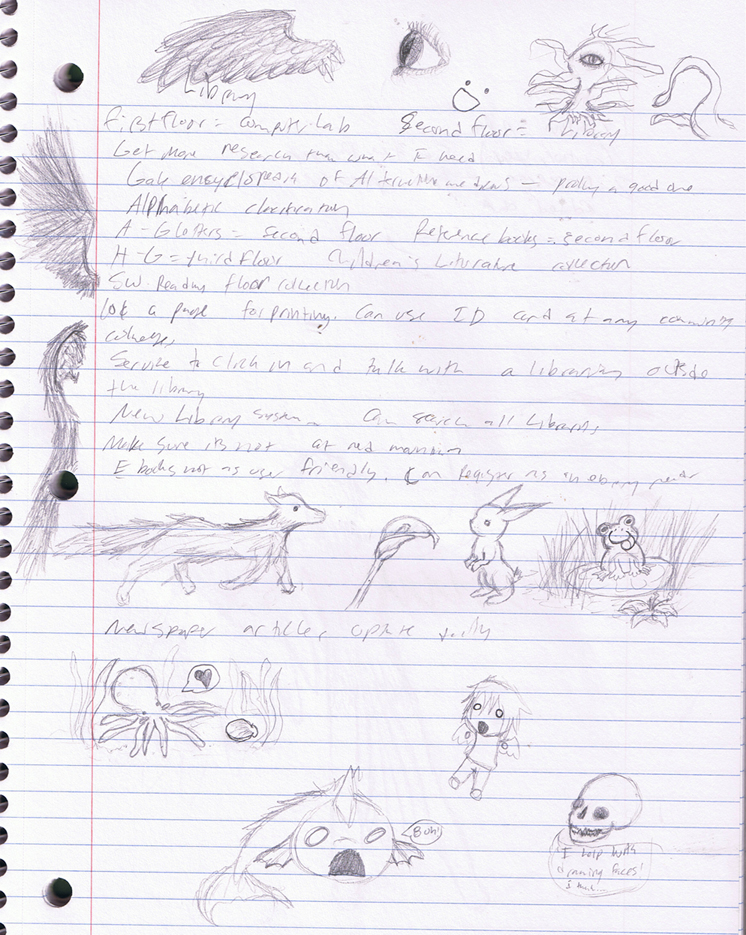 Library
First floor = computer lab Second floor = Library
Get more research than what I need
Gale encyclopedia of Alternative medicines - a good one
Alphabetic classification
A - = second floor Reference books = second floor
H - G = third floor Children's Literature collection
SW. Reading floor collection
10¢ a page for printing. Can use ID card at any community
colleges
Service to click in and talk with a librarian outside
the library
New Library system Can search all Libraries
Make sure its not at red mountain
E books not as user friendly. Can Register as an
Newspaper articles update
Boh!
I help with
drawing faces!